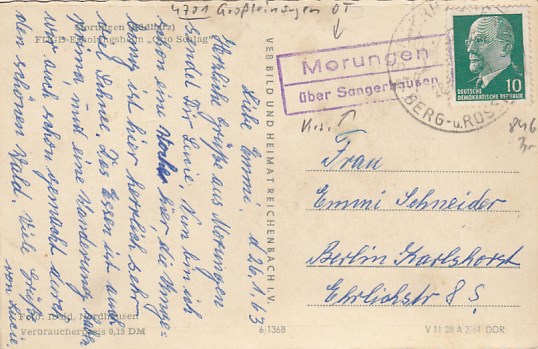 4701 Großleinungen OT
Morungen (Südharz)
FDGB-Erholungsheim "Otto Schlag"
Liebe Emmi. d 26.1.63
Herzliche Grüße aus Morungen
sendet Dir Lucie. Nun bin ich
schon eine Woche hier die Umge-
bung ist hier herrlich sehr
viel Schnee. Das Essen ist auch
prima und eine Wanderung habe
wir auch schon gemacht durch
den schönen Wald. Viele Grüße
von Lucie
Foto: Nordhausen
Verbraucherpreis 0,15 DM
VEB BILD UND HEIMAT REICHENBACH I.V.
6/1368
Morungen
über Sangerhausen
BERG-u.ROS
10
DEUTSCHE
DEMOKRATISCHE REPUBLIK
846
Frau
Emmi Schneider
Berlin Karlshorst
Ehrlichstr 8
V 11 28 A 3/61 DDR